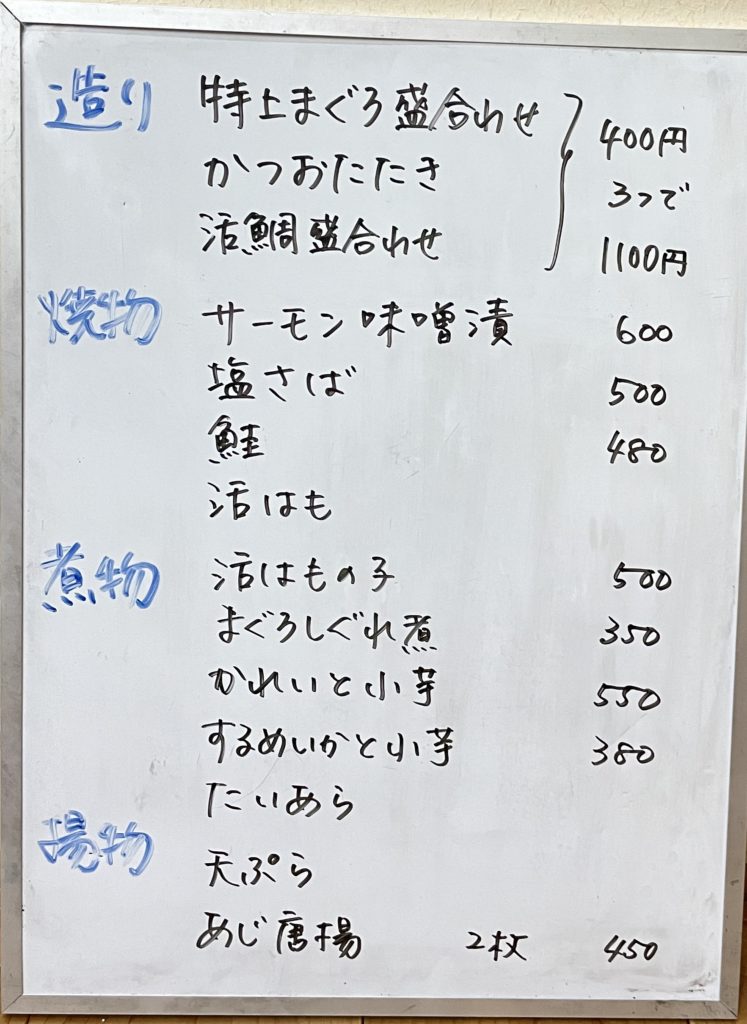 造り 特上まぐろ盛合わせ 400円
かつおたたき 3つで
活鯛盛合わせ 1100円
焼物 サーモン味噌漬 600
塩さば 500
鮭 480
活はも
煮物 活はもの子 500
まぐろしぐれ煮 350
かれいと小芋 550
するめいかと小芋 380
たいあら
揚物 天ぷら
あじ唐揚 2枚 450